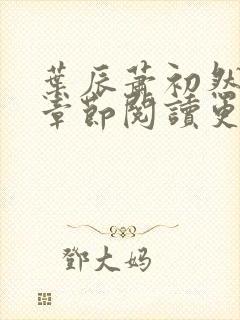 葉辰蕭初然
章節閱讀更
鄧大妈